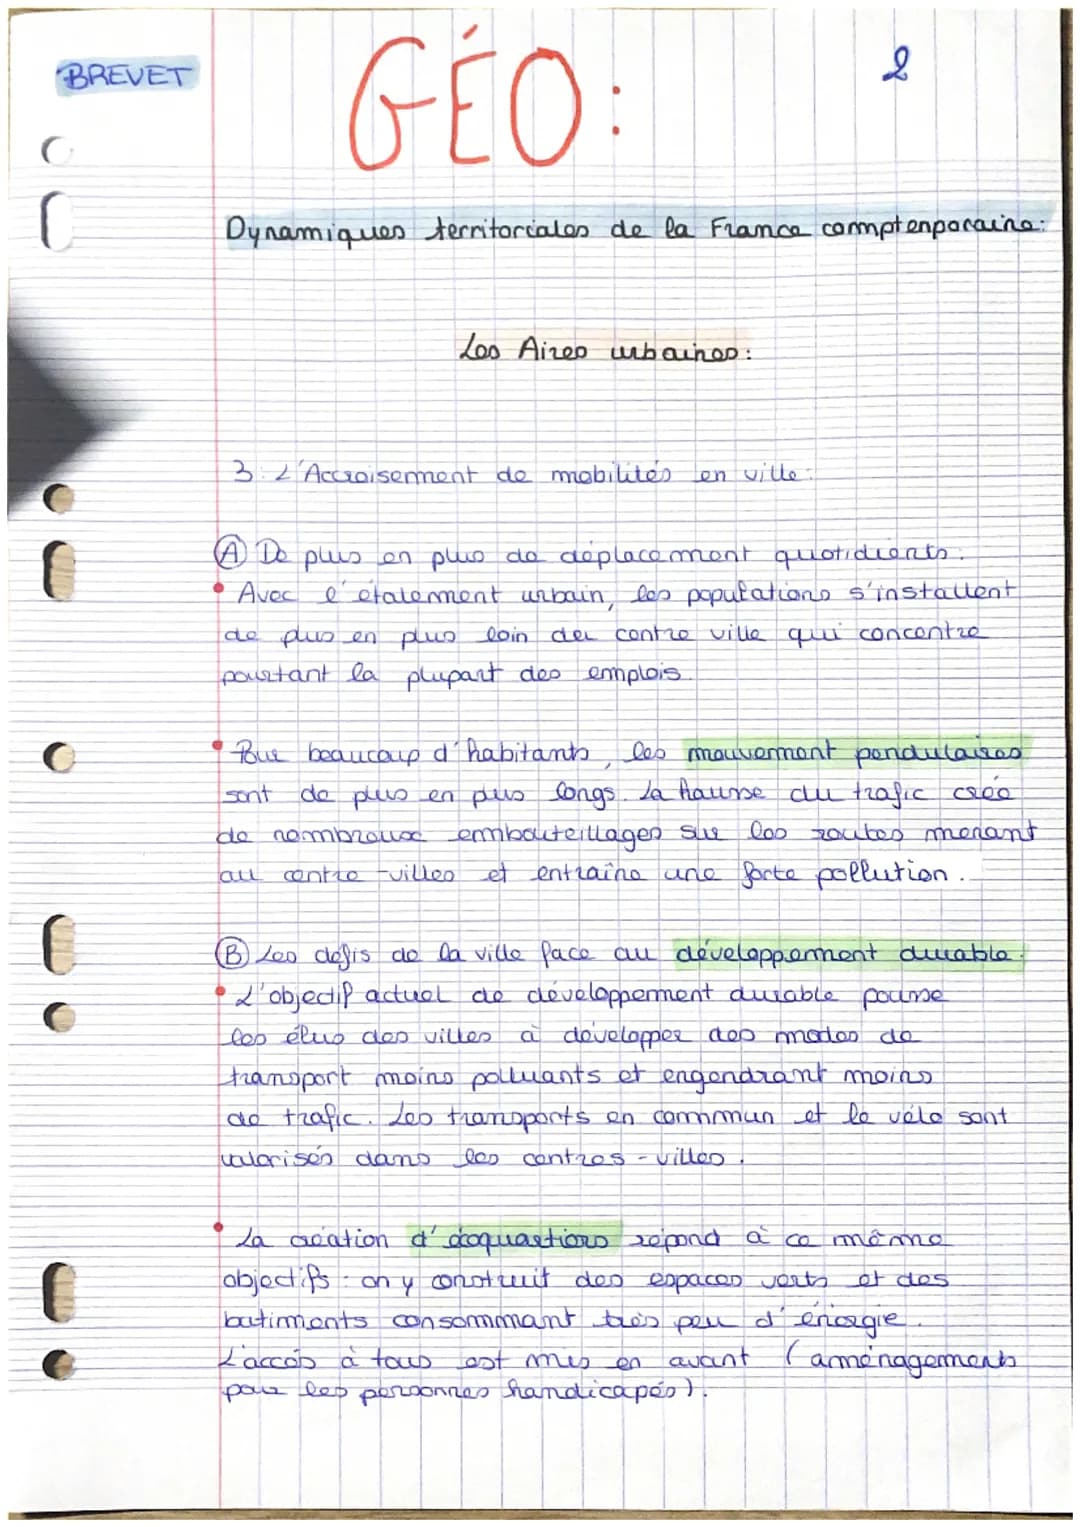 BREVET
GÉO:
2
Dynamiques territoriales de la France comptenporaine:
Les Aires urbaines:
3. L'Accroisement de mobilités en ville:
A De plus en plus de déplacement quotidients:
• Avec l'étalement urbain, les populations s'installent
de plus en plus loin du centre ville qui concentre
pourtant la plupart des emplois.
• Pour beaucoup d'habitants, les mouvement pendulaires
sont de plus en plus longs. La hausse du trafic créé
de nombreux embouteillages sur les routes menant
au centre-villes et entraîne une forte pollution.
B Les défis de la ville face au développement durable:
• L'objectif actuel de développement durable pousse
les élus des villes à développer des modes de
transport moins polluants et engendrant moins
de trafic. Les transports en commun et le vélo sont
valorisés dans les centres-villes.
• La création d'écoquartiers répond à ce même
objectifs: on y construit des espaces verts et des
batiments consommant très peu d'énergie.
L'accès à tous est mis en avant (aménagements
pour les personnes handicapés).